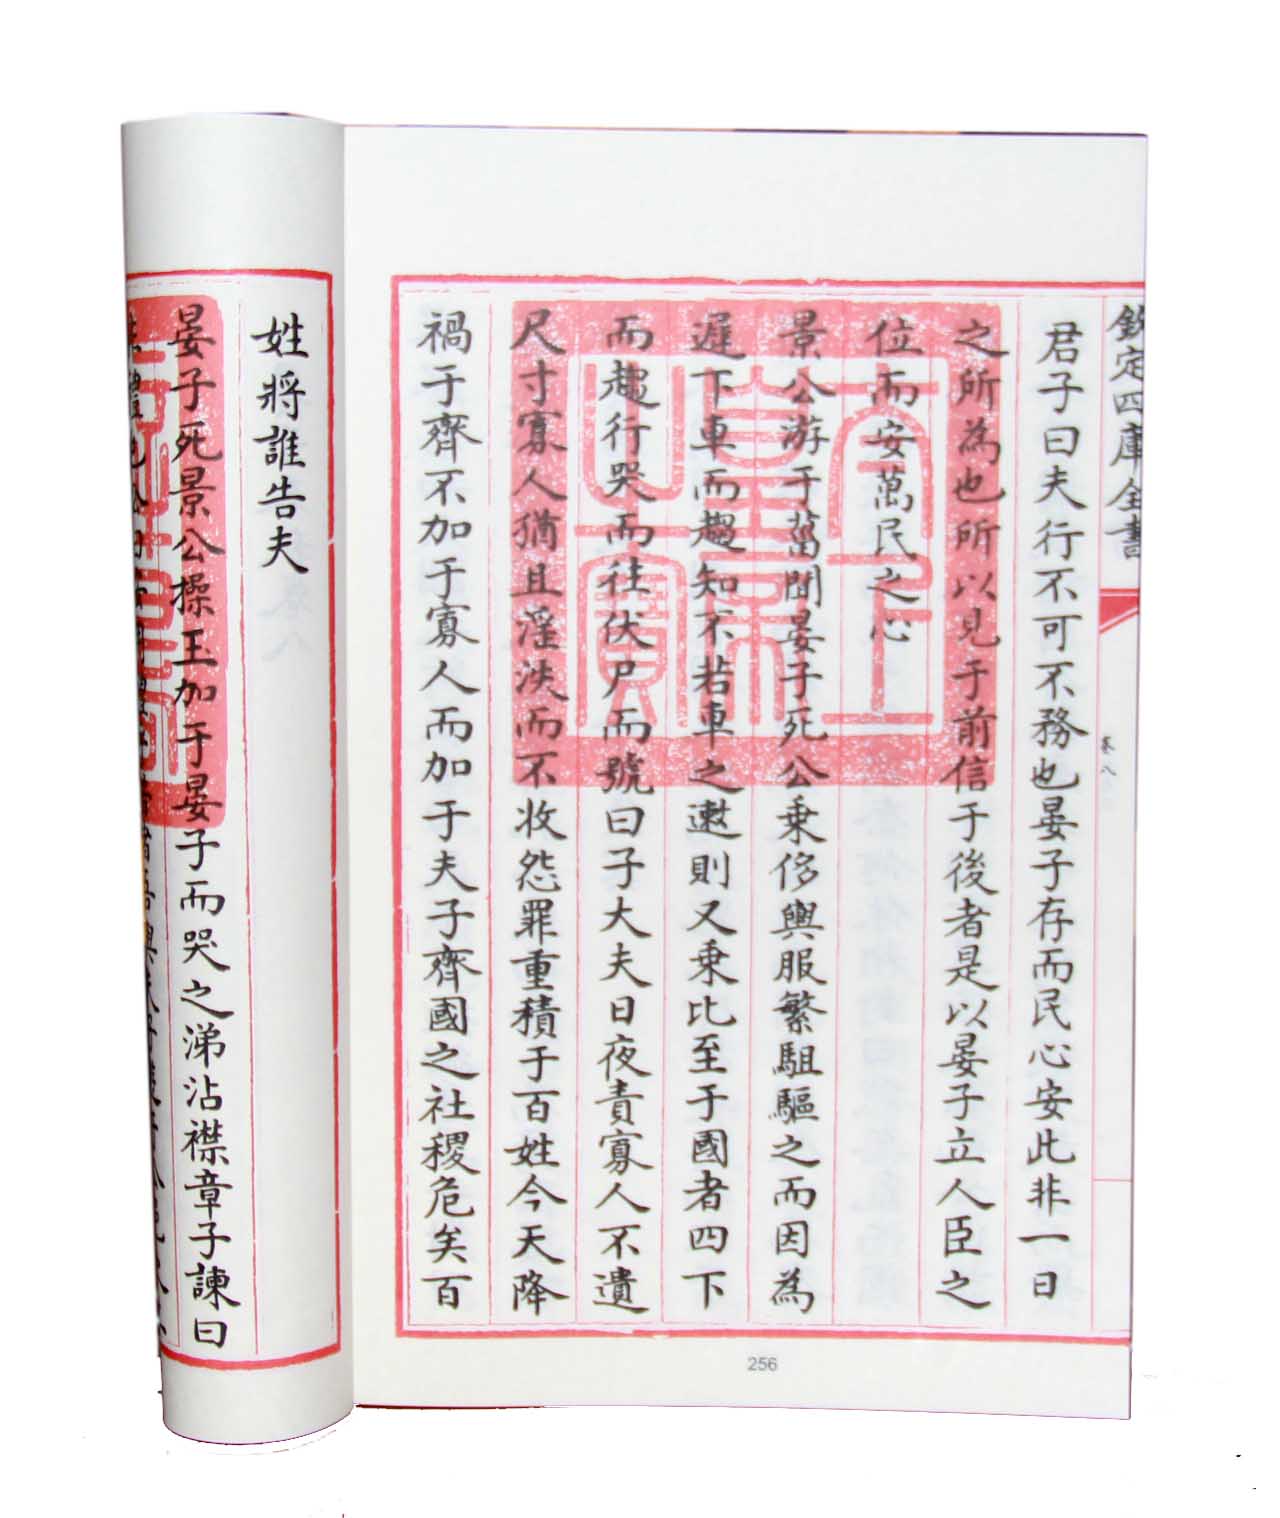 欽定四庫全書
卷八
君子曰夫行不可不務也晏子存而民心安此非一日
之所為也所以見于前信于後者是以晏子立人臣之
位而安萬民之心
景公游于菑聞晏子死公乗侈輿服繁駔驅之而因為
遲下車而趨知不若車之遬則又乗比至于國者四下
而趨行哭而往伏尸而號曰子大夫日夜責寡人不遺
尺寸寡人猶且淫泆而不收怨罪重積于百姓今天降
禍于齊不加于寡人而加于夫子齊國之社稷危矣百
256
姓將誰告夫
晏子死景公操玉加于晏子而哭之涕沾襟章子諫曰